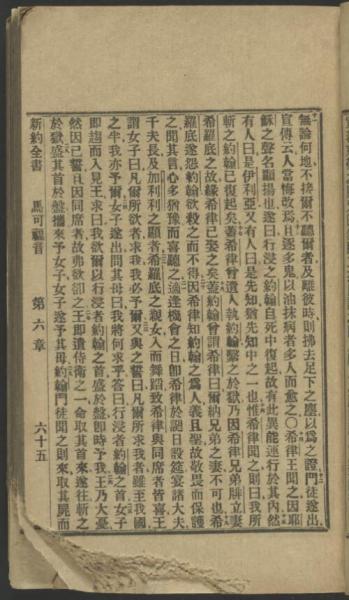 無論何地不接爾不聽爾者及離彼時則拂去足下之塵以爲之證門徒遂出
宣傳云人當悔改焉且逐多鬼以油抹病者多人而愈之〇希律王聞之因耶
穌之聲名顯揚也遂曰行浸之約翰自死中復起故有此異能運行於其內然
有人曰是伊利亞又有人曰是先知猶先知中之一也惟希律聞之則曰我所
斬之約翰已復起矣蓋希律曾遣人執約翰繫之於獄乃因希律兄弟腓立妻
希羅底之故緣希律已娶之矣蓋約翰曾謂希律曰爾納兄弟之妻不可也希
羅底遂怨約翰欲殺之而不得因希律知約翰之爲人義且聖故敬畏而保護
之聞其言心多猶豫而喜聽之適逢機會之日卽希律於誕日設筵宴諸大夫
千夫長及加利利之顯者希羅底之親女入而舞蹈致希律與同席者皆喜王
謂女子曰凡爾所欲者求我我必予爾又與之誓曰凡爾所求我者雖至我國
之半我亦予爾女子遂出問其母曰我將何求乎答曰行浸者約翰之首女子
卽趨而入見王求曰我欲爾以行浸者約翰之首盛於盤卽時予我王乃大憂
然因已誓且因同席者故弗欲卻之王卽遣侍衞之一命取其首來遂往斬之
於獄盛其首於盤攜來予女子女子遂予其母約翰門徒聞之則來取其屍而
新約全書 馬可福音 第六章 六十五